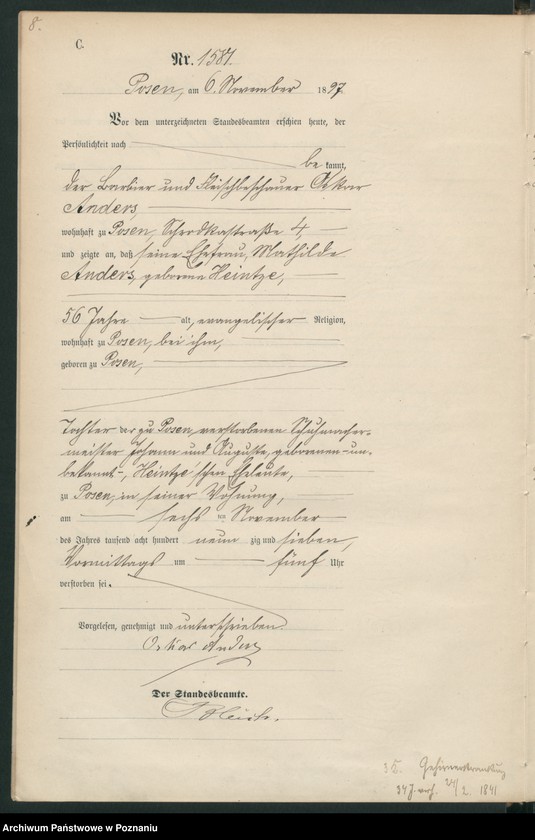 8.
C.
Nr. 1581.
Posen, am 6. November 1897.
Vor dem unterzeichneten Standesbeamten erschien heute, der
Persönlichkeit nach
be kannt,
der Barbier und Fleischbeschauer Oskar
Anders,
wohnhaft zu Posen, Schrodkastraße 4,
und zeigte an, daß seine Ehefrau, Mathilde
Anders, geborene Heintze,
56 Jahre alt, evangelischer Religion,
wohnhaft zu Posen, bei ihm,
geboren zu Posen,
Tochter der zu Posen, verstorbenen Schuhmacher-
meister Johann und Auguste, geborenen - un-
bekannt -, Heintze'schen Eheleute,
zu Posen, in seiner Wohnung,
am sechs ten November
des Jahres tausend acht hundert neun zig und sieben,
Vormittags um fünf Uhr
verstorben sei.
Vorgelesen, genehmigt und unterschrieben.
Oskar Anders
Der Standesbeamte.
Gehirnerkrankung
34 J. verh. 24/2. 1841
Archiwum Państwowe w Poznaniu